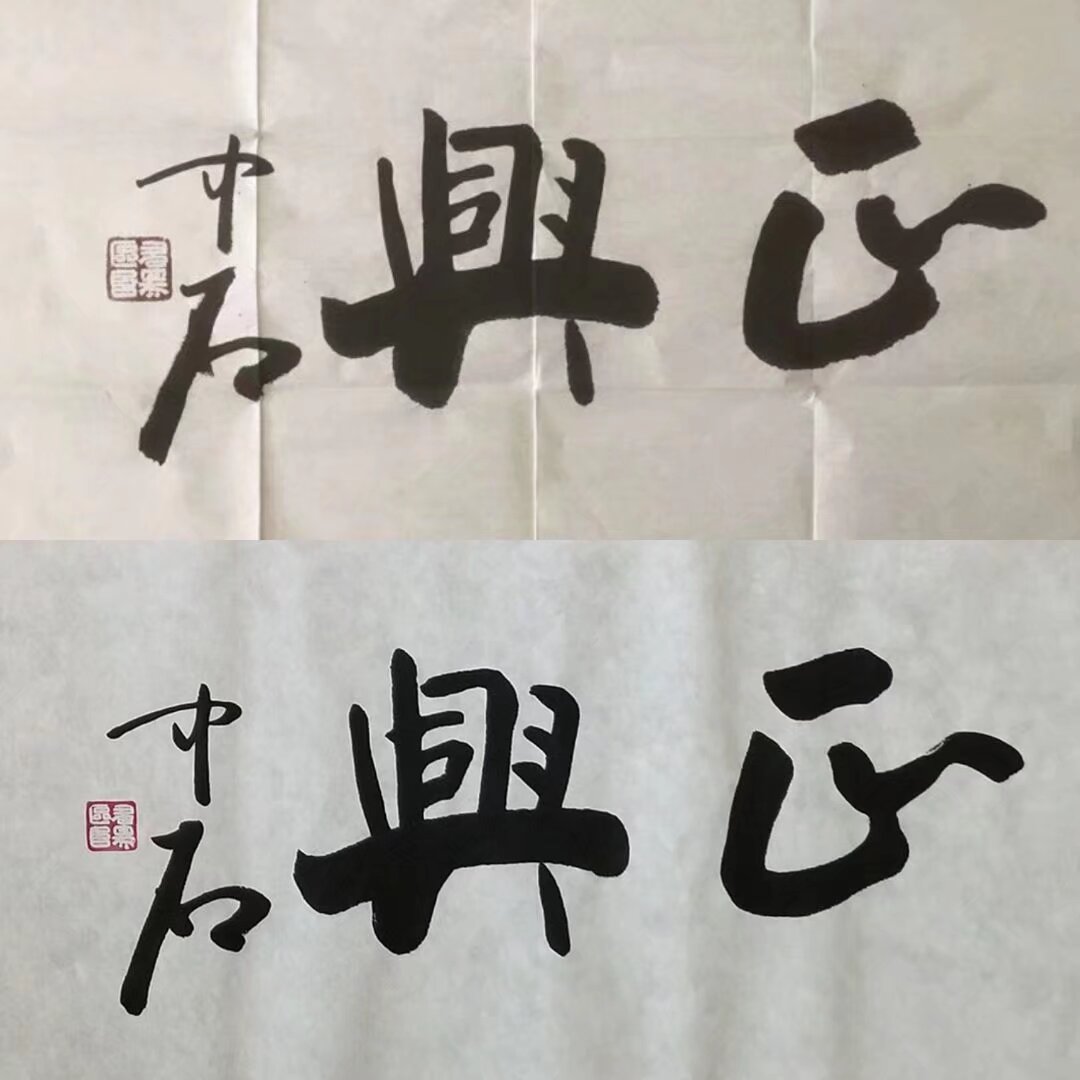 正興
中石
正興
中石